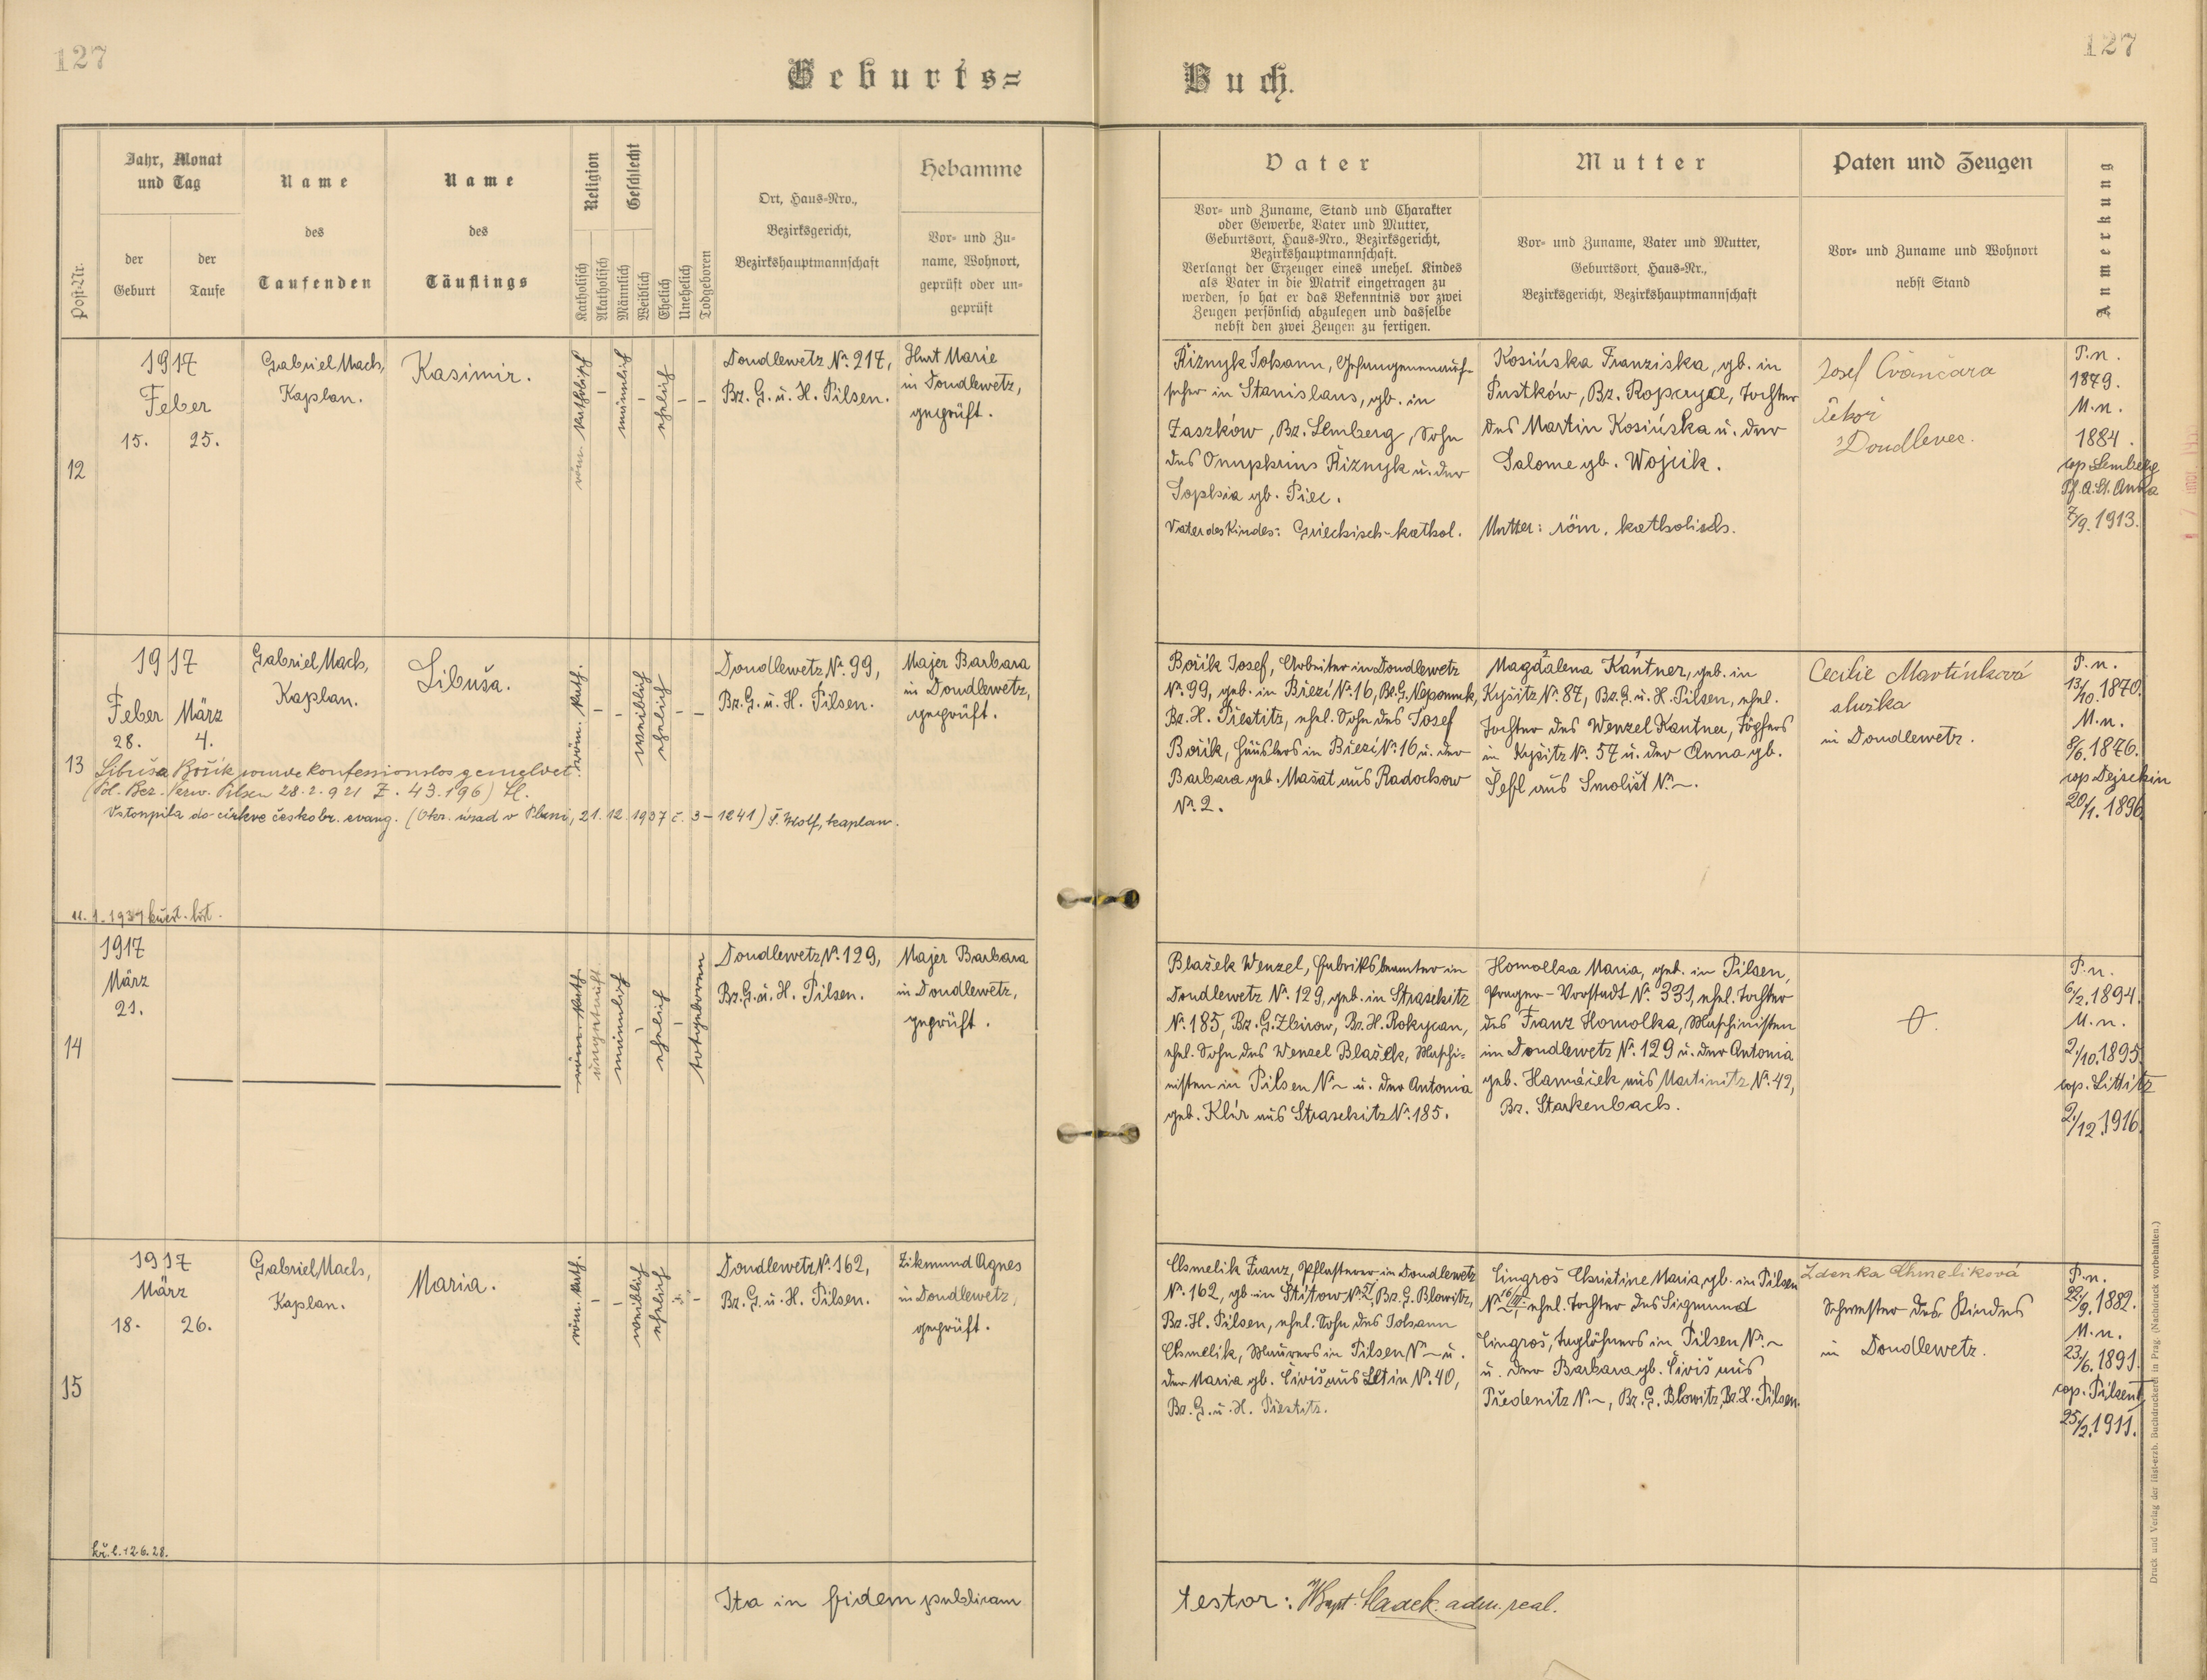 127
127
Geburts=
Buch.
Post-Nr.
Jahr, Monat
und Tag
der
Geburt
der
Taufe
Name
des
Taufenden
Name
des
Täuflings
Religion
Katholisch
Akatholisch
Geschlecht
Männlich
Weiblich
Ehelich
Unehelich
Todgeboren
Ort, Haus-Nro.,
Bezirksgericht,
Bezirkshauptmannschaft
Hebamme
Vor- und Zu-
name, Wohnort,
geprüft oder un-
geprüft
Vater
Vor- und Zuname, Stand und Charakter
oder Gewerbe, Vater und Mutter,
Geburtsort, Haus-Nro., Bezirksgericht,
Bezirkshauptmannschaft.
Verlangt der Erzeuger eines unehel. Kindes
als Vater in die Matrik eingetragen zu
werden, so hat er das Bekenntnis vor zwei
Zeugen persönlich abzulegen und dasselbe
nebst den zwei Zeugen zu fertigen.
Mutter
Vor- und Zuname, Vater und Mutter,
Geburtsort, Haus-Nr.,
Bezirksgericht, Bezirkshauptmannschaft
Paten und Zeugen
Vor- und Zuname und Wohnort
nebst Stand
Anmerkung
12
1917
Feber
15. 25.
Gabriel Mach,
Kaplan.
Kasimir.
röm. katholisch
-
männlich
-
ehelich
-
-
Doudlewetz №. 217,
Bz. G. u. H. Pilsen.
Hurt Marie
in Doudlewetz,
geprüft.
Řiznyk Johann, Gefangenenauf-
seher in Stanislaus, gb. in
Zaszków, Bz. Lemberg, Sohn
des Onuphrius Řiznyk u. der
Sophia gb. Piec.
Vater des Kindes: Griechisch-kathol.
Kosińska Franziska, gb. in
Pustków, Bz. Ropczyce, Tochter
des Martin Kosińska u. der
Salome gb. Wojcik.
Mutter: röm. katholisch.
Josef Čvančara
Doudlevec.
P.n.
1879.
M.n.
1884.
cop. Lemberg
Pf. A. St. Anna
7/9. 1913.
13
1917
Feber März
28. 4.
Gabriel Mach,
Kaplan.
Libuša.
röm. kath.
-
-
weiblich
ehelich
-
-
Doudlewetz №. 99,
Bz. G. u. H. Pilsen.
Majer Barbara
in Doudlewetz,
geprüft.
Libuša Bořik wurde konfessionslos gemeldet.
(Pol. Bez. Verw. Pilsen 28.2.921 Z. 43.196)
Vstoupila do církve českobr. evang. (Okr. úřad v Plzni, 21.12.1937 č. 3-1241) F. Wolf, kaplan.
11.1.1939 křest. list.
Bořik Josef, Arbeiter in Doudlewetz
№. 99, geb. in Březí №. 16, Bz. G. Nepomuk,
Bz. H. Přestitz, ehel. Sohn des Josef
Bořik, Häuslers in Březí №. 16 u. der
Barbara geb. Mašat aus Radochow
№. 2.
Magdalena Kantner, geb. in
Kyšitz №. 87, Bz. G. u. H. Pilsen, ehel.
Tochter des Wenzel Kantner, Töpfers
in Kyšitz №. 57 u. der Anna gb.
Šefl aus Smolišt №. ~.
Cecilie Martínková
služka
in Doudlewetz.
P.n.
13/10. 1870.
M.n.
8/6. 1876.
cop. Dejschin
20/1. 1896.
14
1917
März
21.
röm. kath.
ungetauft
männlich
-
ehelich
-
totgeboren
Doudlewetz №. 129,
Bz. G. u. H. Pilsen.
Majer Barbara
in Doudlewetz,
geprüft.
Blažek Wenzel, Fabriksbeamter in
Doudlewetz №. 129, geb. in Straschitz
№. 185, Bz. G. Zbirow, Bz. H. Rokycan,
ehel. Sohn des Wenzel Blažek, Maschi-
nisten in Pilsen №. ~ u. der Antonia
geb. Klír aus Straschitz №. 185.
Homolka Maria, geb. in Pilsen,
Prager-Vorstadt №. 331, ehel. Tochter
des Franz Homolka, Maschinisten
im Doudlewetz №. 129 u. der Antonia
geb. Hamáček aus Martinitz №. 42,
Bz. Starkenbach.
P.n.
6/2. 1894.
M.n.
2/10. 1895.
cop. Littitz
2/12. 1916.
15
1917
März
18. 26.
Gabriel Mach,
Kaplan.
Maria.
röm. kath.
-
-
weiblich
ehelich
-
-
Doudlewetz №. 162,
Bz. G. u. H. Pilsen.
Zikmund Agnes
in Doudlewetz,
geprüft.
kř. l. 12.6.28.
Chmelik Franz, Pflasterer in Doudlewetz
№. 162, gb. in Štítow №. 21, Bz. G. Blowitz,
Bz. H. Pilsen, ehel. Sohn des Johann
Chmelik, Maurers in Pilsen №. ~ u.
der Maria gb. Čiviš aus Letin №. 40,
Bz. G. u. H. Přestitz.
Cingroš Christine Maria, gb. in Pilsen
№. 16/III, ehel. Tochter des Sigmund
Cingroš, Taglöhners in Pilsen №. ~
u. der Barbara gb. Čiviš aus
Předenitz №. ~, Bz. G. Blowitz, Bz. H. Pilsen.
Zdenka Chmelíková
Schwester des Kindes
in Doudlewetz.
P.n.
22/9. 1882.
M.n.
23/6. 1891.
cop. Pilsen
25/2. 1911.
Ita in fidem publicam
testor: Hladek. adm. real.
Druck und Verlag der fürst-erzb. Buchdruckerei in Prag. (Nachdruck vorbehalten.)